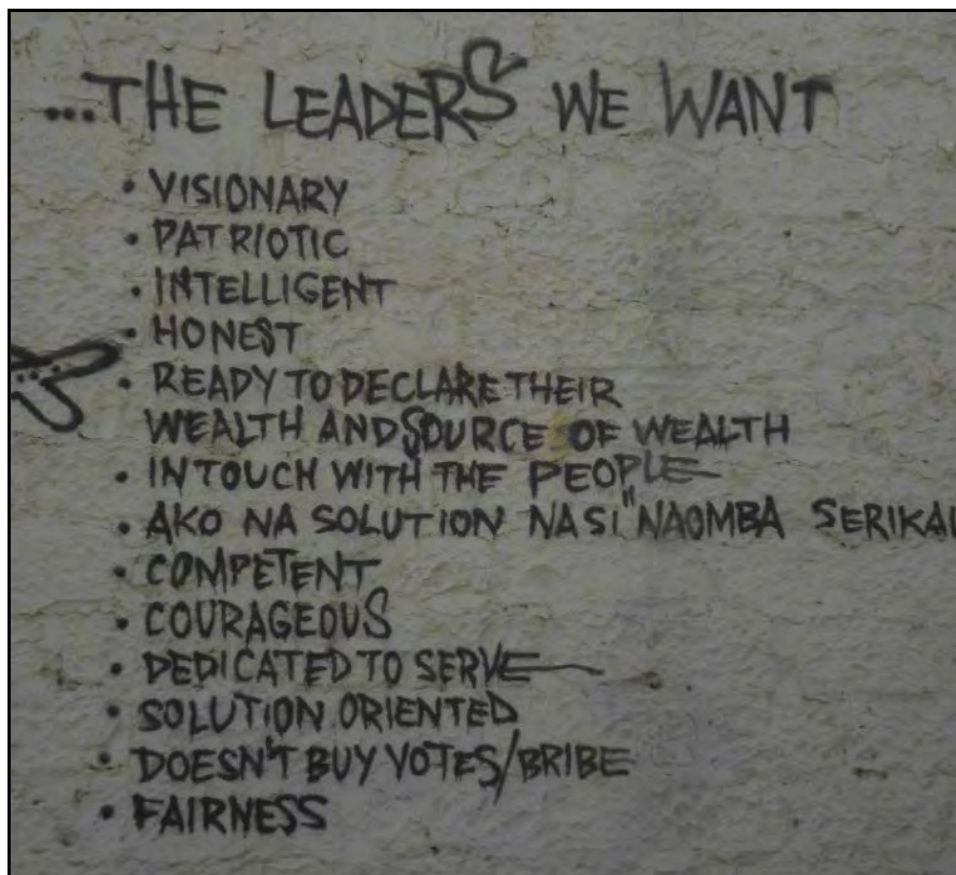 ...THE LEADERS WE WANT
• VISIONARY
• PATRIOTIC
• INTELLIGENT
• HONEST
• READY TO DECLARE THEIR
WEALTH AND SOURCE OF WEALTH
• IN TOUCH WITH THE PEOPLE
• AKO NA SOLUTION NA SI "NAOMBA SERIKAL
• COMPETENT
• COURAGEOUS
• DEDICATED TO SERVE
• SOLUTION ORIENTED
• DOESN'T BUY VOTES/BRIBE
• FAIRNESS